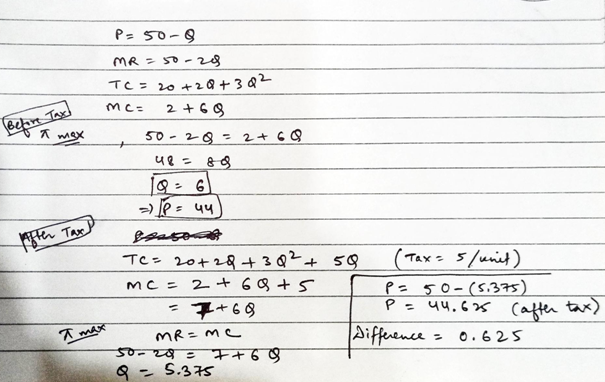 P = 50 - Q
MR = 50 - 2Q
TC = 20 + 2Q + 3Q²
MC = 2 + 6Q
Before Tax
π max , 50 - 2Q = 2 + 6Q
48 = 8Q
Q = 6
=) P = 44
After Tax
TC = 20 + 2Q + 3Q² + 5Q (Tax = 5/unit)
MC = 2 + 6Q + 5
= 7 + 6Q
π max MR = MC
50 - 2Q = 7 + 6Q
Q = 5.375
P = 50 - (5.375)
P = 44.625 (after tax)
Difference = 0.625